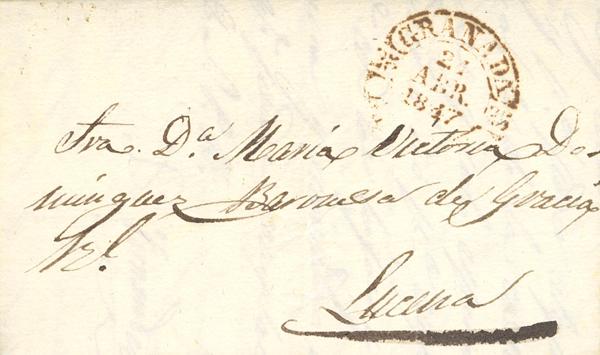 GRANADA
21
ABR.
1847
Sra. D.ª María Victoria Do-
minguez Baronesa de Gracia
Rl.
Lucena